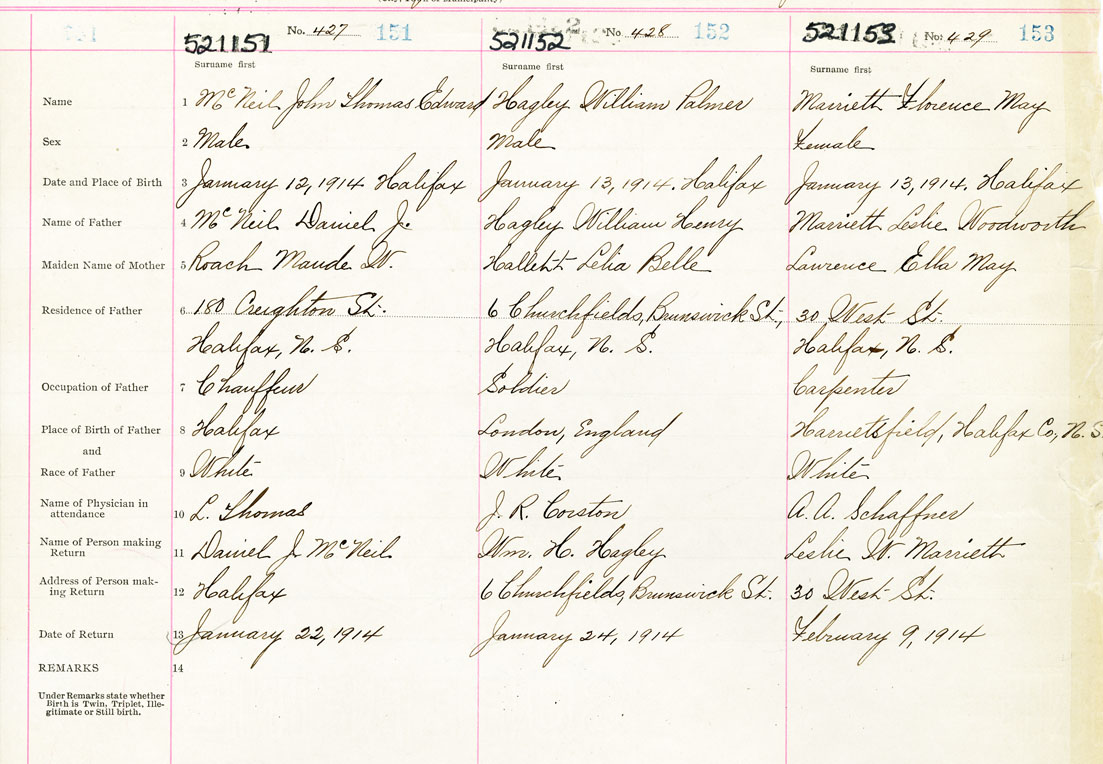 521151 No. 427 151 521152 No. 428 152 521153 No. 429 153
Surname first Surname first Surname first
Name 1 McNeil John Thomas Edward Hagley William Palmer Marrieth Florence May
Sex 2 Male Male Female
Date and Place of Birth 3 January 12, 1914 Halifax January 13, 1914. Halifax January 13, 1914, Halifax
Name of Father 4 McNeil Daniel J. Hagley William Henry Marriett Leslie Woodworth
Maiden Name of Mother 5 Roach Maude W. Hallett Lelia Belle Lawrence Ella May
Residence of Father 6 180 Creighton St. 6 Churchfields, Brunswick St., 30 West St.
Halifax, N. S. Halifax, N. S. Halifax, N. S.
Occupation of Father 7 Chauffeur Soldier Carpenter
Place of Birth of Father 8 Halifax London, England Harrietsfield, Halifax Co., N. S.
and
Race of Father 9 White White White
Name of Physician in
attendance 10 L. Thomas J. R. Corston A. A. Schaffner
Name of Person making
Return 11 Daniel J McNeil Wm. H. Hagley Leslie W. Marrieth
Address of Person mak-
ing Return 12 Halifax 6 Churchfields, Brunswick St. 30 West St.
Date of Return 13 January 22, 1914 January 24, 1914 February 9, 1914
REMARKS 14
Under Remarks state whether
Birth is Twin, Triplet, Ille-
gitimate or Still birth.